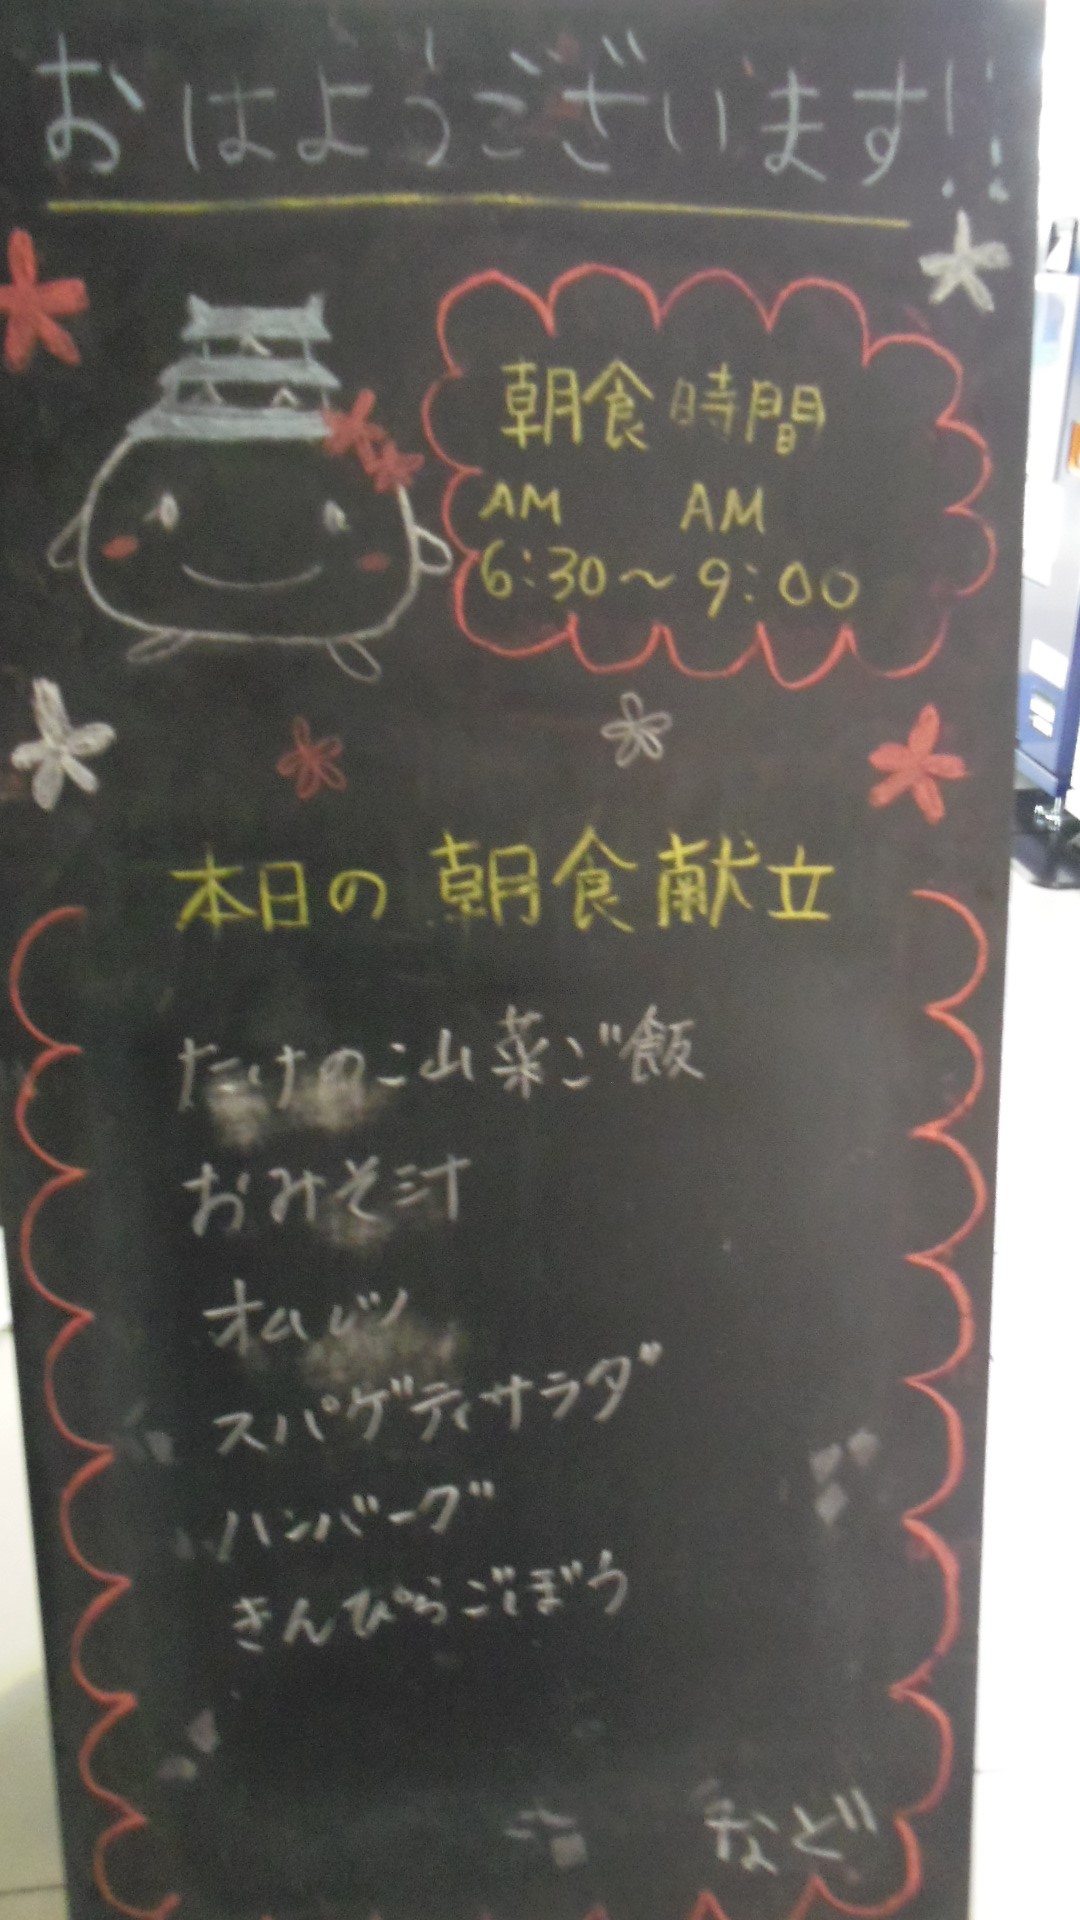 おはようございます!!
朝食時間
AM AM
6:30～9:00
本日の朝食献立
たけのこ山菜ご飯
おみそ汁
オムレツ
スパゲティサラダ
ハンバーグ
きんぴらごぼう
など